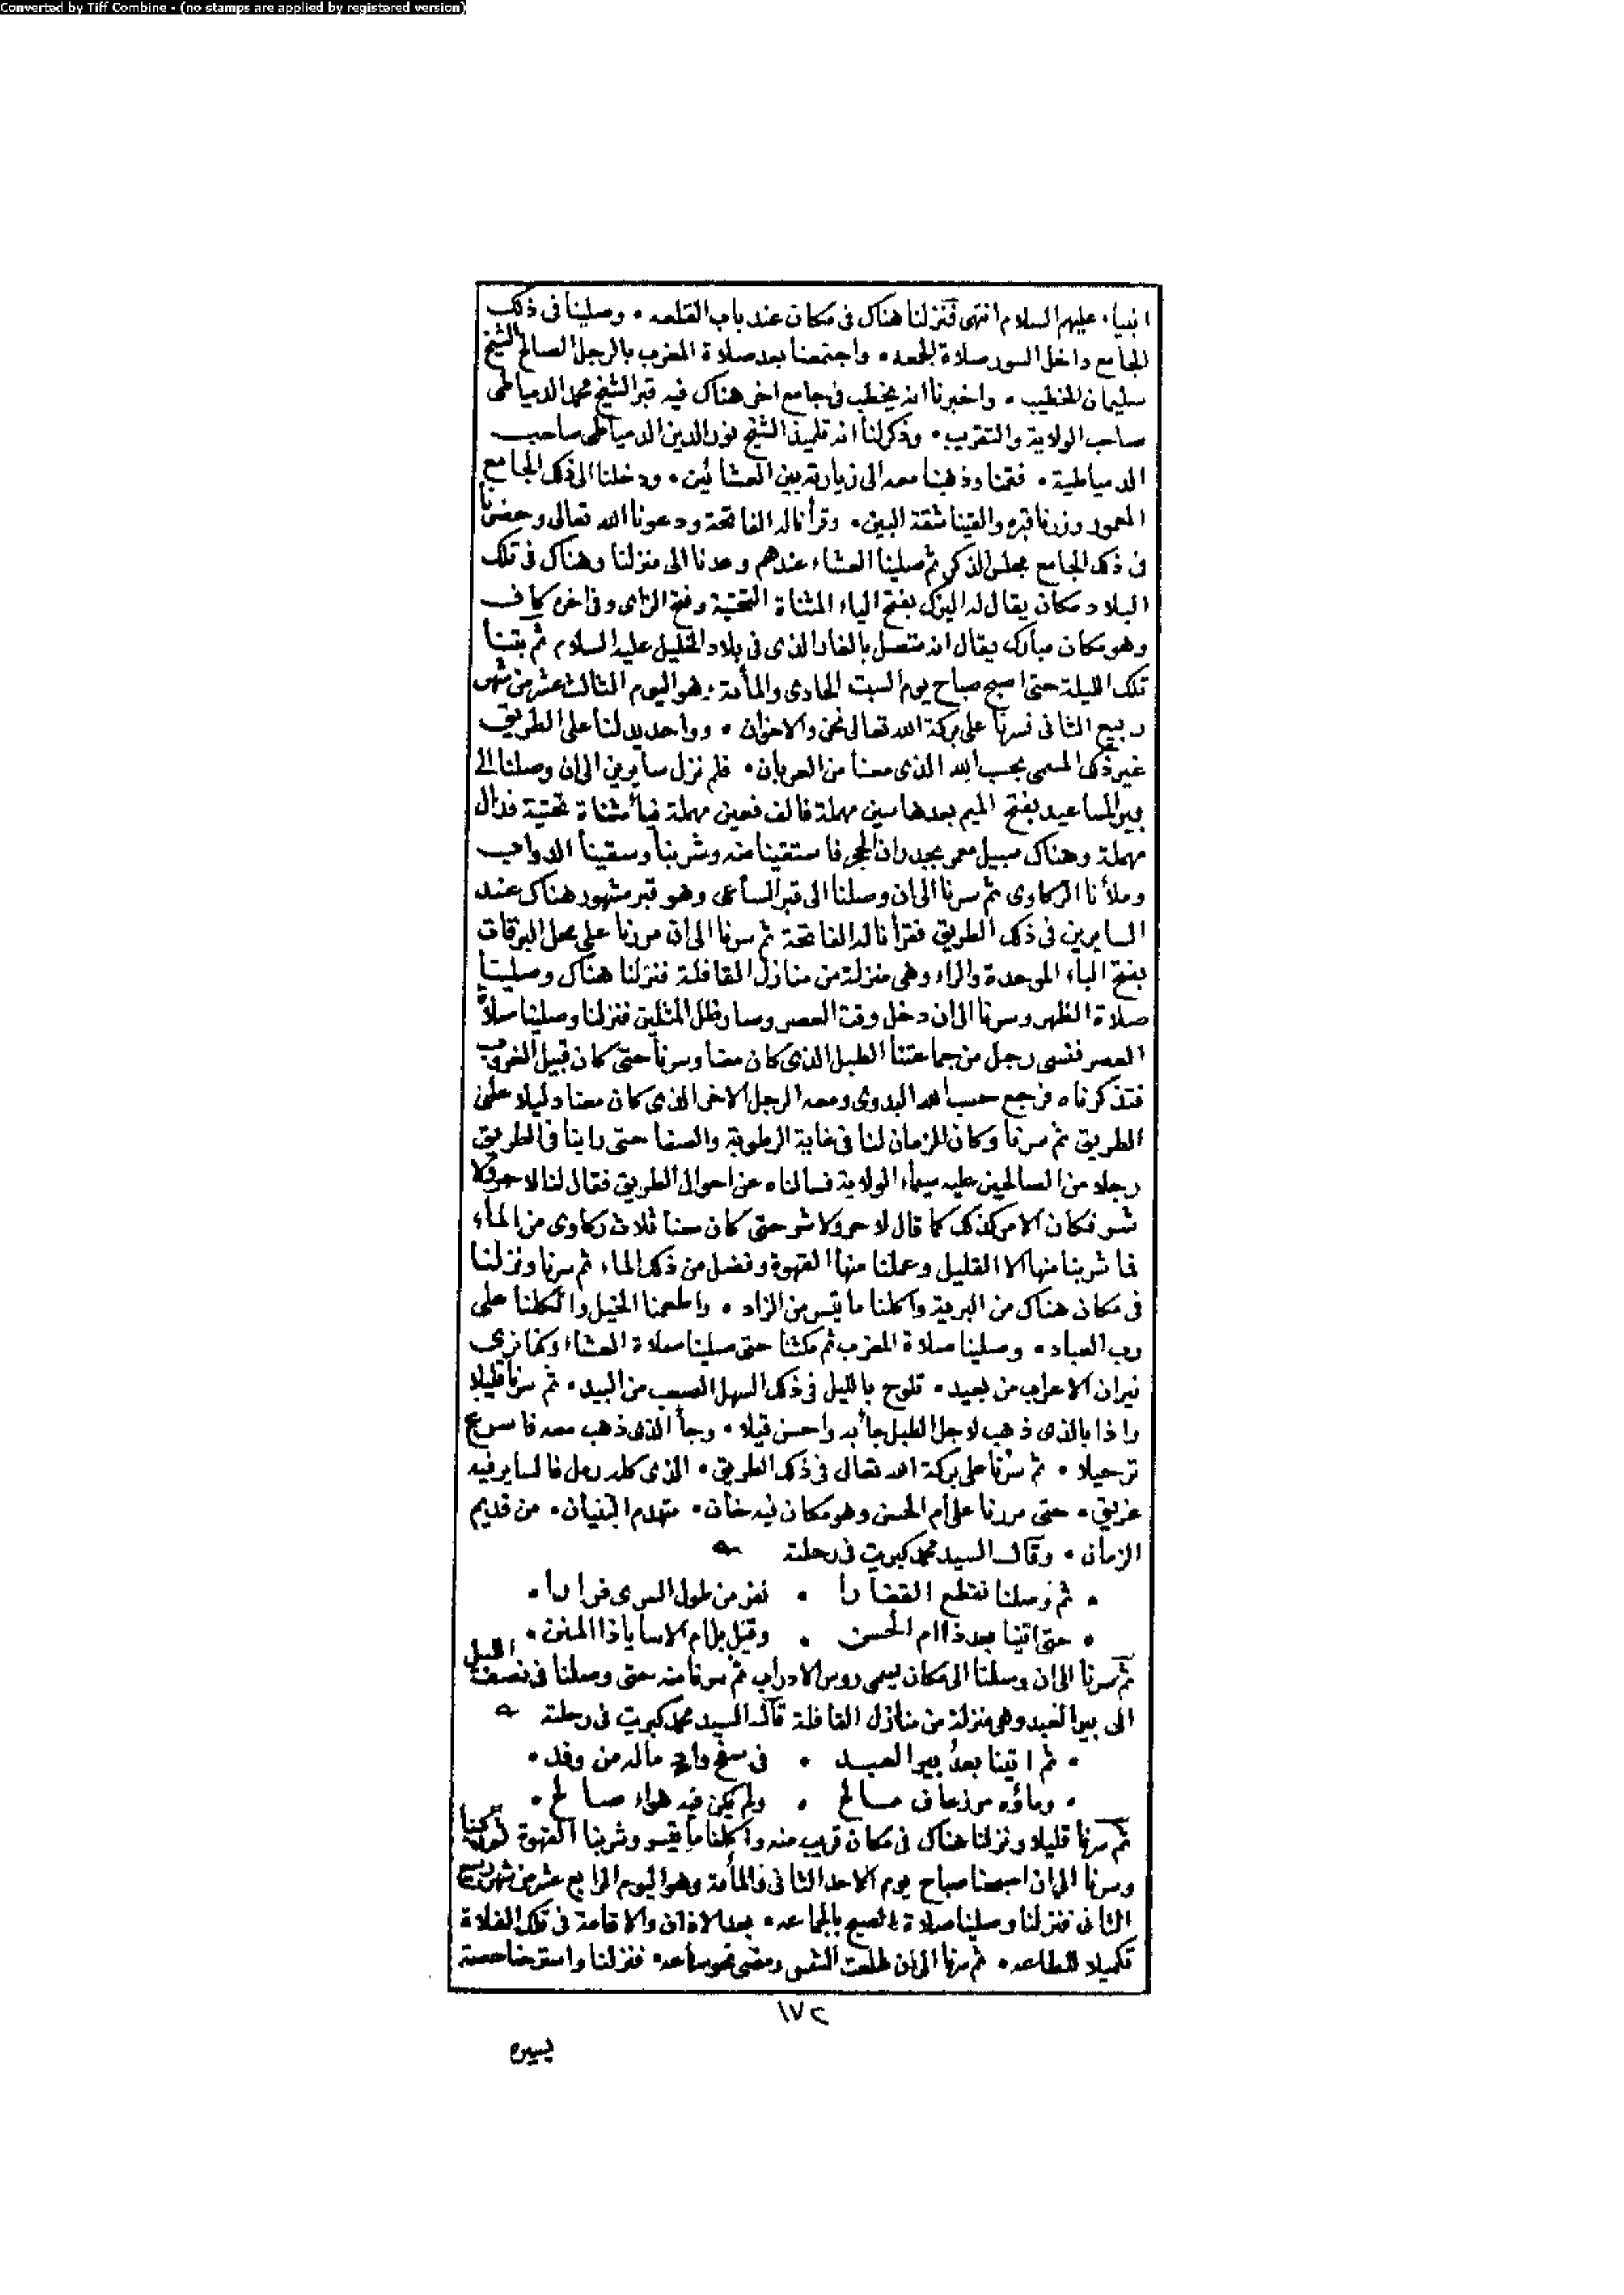 Converted by Tiff Combine - (no stamps are applied by registered version)
انبياء عليهم السلام انتهى فنزلنا هناك فى مكان عند باب القلعه • وصلينا فى ذلك
الجامع داخل السور صلاة الجمعه • واجتمعنا بعد صلاة المغرب بالرجل الصالح الشيخ
سليمان الخطيب • واخبرنا انه يخطب فى جامع اخر هناك فيه قبر الشيخ محمد الدمياطى
صاحب الولاية والتقريب • وذكر لنا انه تلميذ الشيخ نور الدين الدمياطى صاحب
الدمياطية • فقمنا وذهبنا معه الى زيارته بين العشائين • ودخلنا الى ذلك الجامع
المعمور وزرنا قبره والقينا شقة البين • وقرأنا له الفاتحة ودعونا الله تعالى وحضرنا
فى ذلك الجامع مجلس الذكر ثم صلينا العشاء عندهم وعدنا الى منزلنا وهناك فى تلك
البلاد مكان يقال له اليزك بفتح الياء المثناة التحتية وفتح الزاى وفى اخره كاف
وهو مكان مبارك يقال انه متصل بالغار الذى فى بلاد الخليل عليه السلام ثم بتنا
تلك الليلة حتى اصبح صباح يوم السبت الحادى والمأية وهو اليوم الثالث عشر من شهر
ربيع الثانى فسرنا على بركة الله تعالى نحن والاخوان • وواحد يدلنا على الطريق
غير ذلك المسمى بحسب الله الذى معنا من العربان • فلم نزل سايرين الى ان وصلنا الى
بير المساعيد بفتح الميم بعدها سين مهملة فالف فعين مهملة فيأ مثناة تحتية فدال
مهملة وهناك سبيل معمر بجدران الحجر فاستقينا منه وشربنا وسقينا الدواب
وملأنا الركاوى ثم سرنا الى ان وصلنا الى قبر الساعى وهو قبر مشهور هناك عند
السايرين فى ذلك الطريق فقرأنا له الفاتحة ثم سرنا الى ان مررنا على محل البرقات
بفتح الباء الموحدة والراء وهى منزلة من منازل القافلة فنزلنا هناك وصلينا
صلاة الظهر وسرنا الى ان دخل وقت العصر وصار ظل المثلين فنزلنا وصلينا صلاة
العصر فنسى رجل من جماعتنا الطبل الذى كان معنا وسرنا حتى كان قبيل الغروب
فتذكرناه فرجع حسب الله البدوى ومعه الرجل الاخر الذى كان معنا دليلا على
الطريق ثم سرنا وكان الزمان لنا فى غاية الرطوبة والصفا حتى راينا فى الطريق
رجلا من الصالحين عليه سيماء الولاية فسالناه عن احوال الطريق فقال لنا لا حر ولا
شر فكان الامر كذلك كما قال لا حر ولا شر حتى كان معنا ثلاث ركاوى من المأء
فما شربنا منها الا القليل وعملنا منها القهوة وفضل من ذلك الماء ثم سرنا ونزلنا
فى مكان هناك من البرية واكلنا ما تيسر من الزاد • واطعمنا الخيل واتكلنا على
رب العباد • وصلينا صلاة المغرب ثم مكثنا حتى صلينا صلاة العشاء وكنا نرى
نيران الاعراب من بعيد • تلوح بالليل فى ذلك السهل الصعب من البيد • ثم سرنا قليلا
واذا بالذى ذهب لاجل الطبل جأ به واحسن قيلا • وجأ الذى ذهب معه فاسرع
ترحيلا • ثم سرنا على بركة الله تعالى فى ذلك الطريق • الذى كله رمل فالساير فيه
غريق • حتى مررنا على ام الحسن وهو مكان فيه خان • متهدم البنيان • من قديم
الزمان • وقال السيد محمد كبريت فى رحلته
• ثم وصلنا نقطع القفارا • نفر من طول السرى فرارا •
• حتى اتينا بعد ذا ام الحسن • وقيل بل ام الاسا ياذا المنن •
ثم سرنا الى ان وصلنا الى مكان يسمى روس الادراب ثم سرنا منه حتى وصلنا فى نصف الليل
الى بير العبد وهى منزلة من منازل القافلة قال السيد محمد كبريت فى رحلته
• ثم اتينا بعد بير العبد • فى سفح واد ماله من وفد •
• وماؤه مر زعاف مالح • ولم يكن فيه هواء صالح •
ثم سرنا قليلا ونزلنا هناك فى مكان قريب منه واكلنا ما تيسر وشربنا القهوة ثم ركبنا
وسرنا الى ان اصبحنا صباح يوم الاحد الثانى والمأية وهو اليوم الرابع عشر من شهر ربيع
الثانى فنزلنا وصلينا صلاة الصبح بالجماعه • بعد الاذان والاقامة فى تلك الفلاة
تكميلا للطاعه • ثم سرنا الى ان طلعت الشمس ومضى نحو ساعه • فنزلنا واسترحنا حصة
١٧٢
يسيره